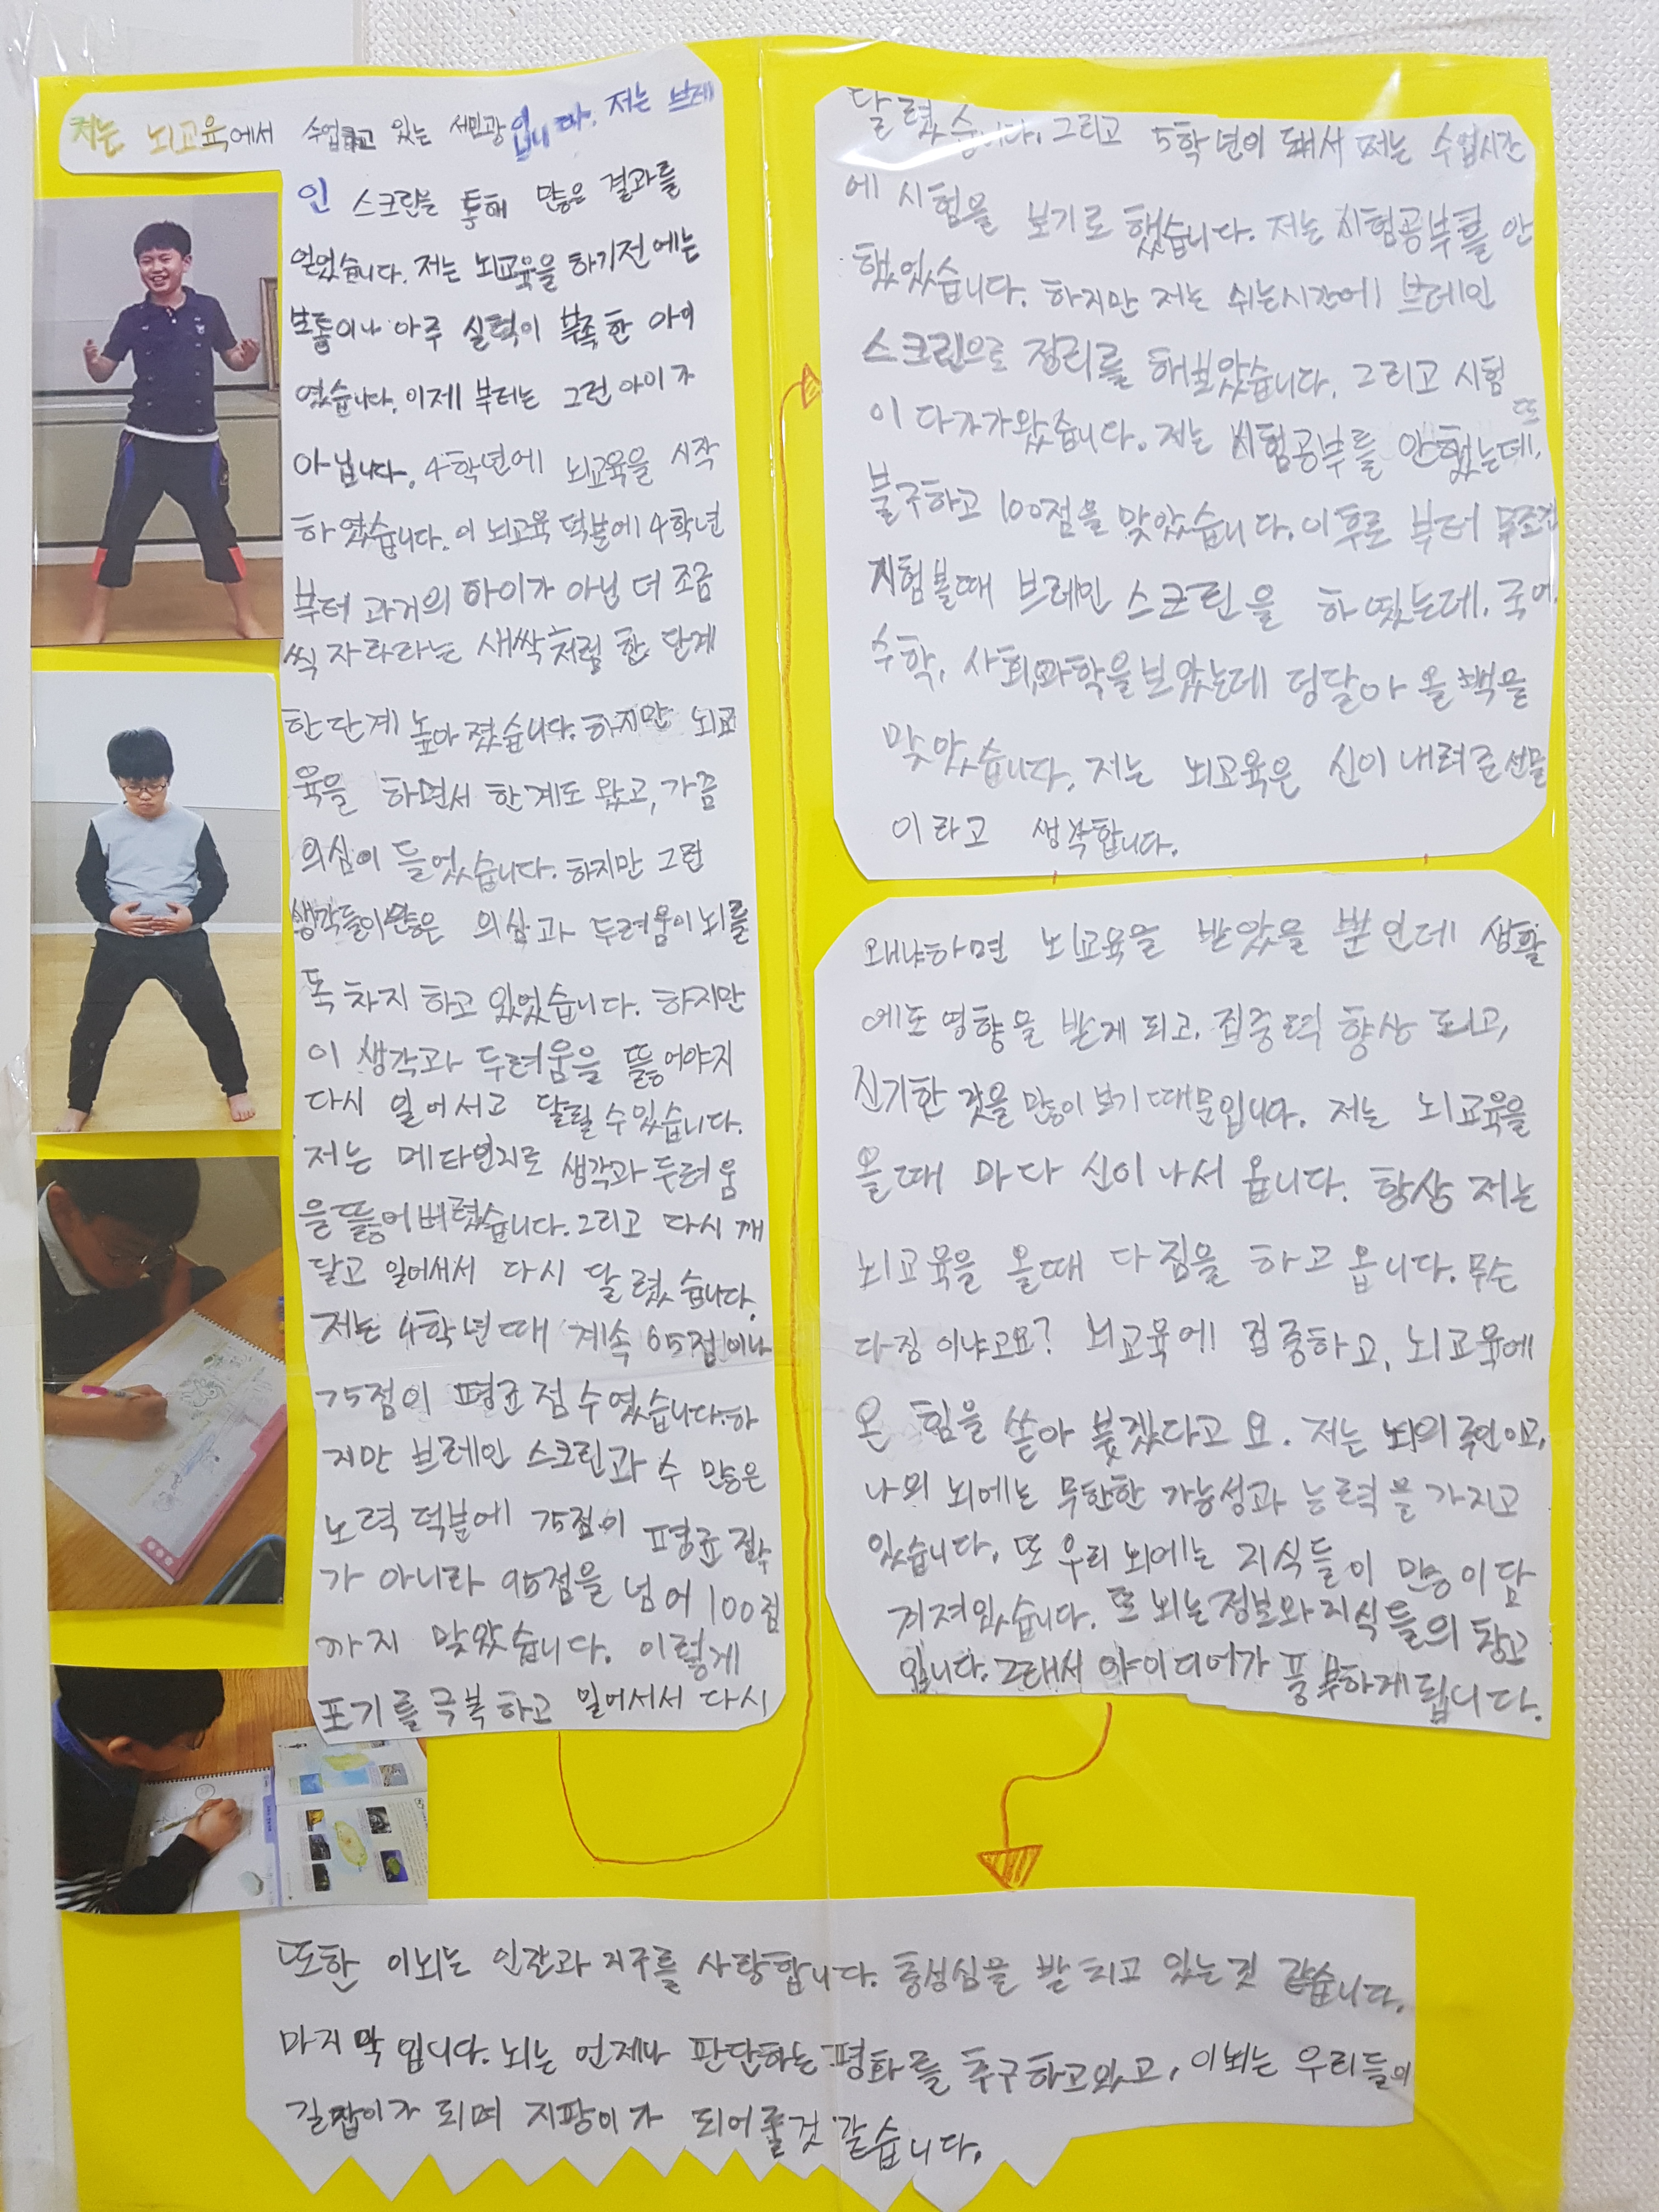 저는 뇌교육에서 수업하고 있는 서민광입니다. 저는 브레
인 스크린을 통해 많은 결과를
얻었습니다. 저는 뇌교육을 하기전에는
보통이나 아주 실력이 부족한 아이
였습니다. 이제부터는 그런 아이가
아닙니다. 4학년에 뇌교육을 시작
하였습니다. 이 뇌교육 덕분에 4학년
부터 과거의 아이가 아닌 더 조금
씩 자라나는 새싹처럼 한 단계
한단계 높아졌습니다. 하지만 뇌교
육을 하면서 한계도 왔고, 가끔
의심이 들었습니다. 하지만 그런
생각들이 많은 의심과 두려움이 뇌를
독차지 하고 있었습니다. 하지만
이 생각과 두려움을 뚫어야지
다시 일어서고 달릴 수 있습니다.
저는 메타인지로 생각과 두려움
을 뚫어버렸습니다. 그리고 다시 깨
닫고 일어서서 다시 달렸습니다.
저는 4학년때 계속 65점이나
75점이 평균 점수였습니다. 하
지만 브레인 스크린과 수 많은
노력 덕분에 75점이 평균 점수
가 아니라 95점을 넘어 100점
까지 맞았습니다. 이렇게
포기를 극복하고 일어서서 다시
달렸습니다. 그리고 5학년이 돼서 저는 수업시간
에 시험을 보기로 했습니다. 저는 시험공부를 안
했었습니다. 하지만 저는 쉬는시간에 브레인
스크린으로 정리를 해보았습니다. 그리고 시험
이 다가왔습니다. 저는 시험공부를 안했는데도
불구하고 100점을 맞았습니다. 이후로 부터 무조건
시험볼때 브레인 스크린을 하였는데, 국어,
수학, 사회, 과학을 보았는데 덩달아 올백을
맞았습니다. 저는 뇌교육은 신이 내려준 선물
이라고 생각합니다.
왜냐하면 뇌교육을 받았을 뿐인데 생활
에도 영향을 받게 되고, 집중력 향상 되고,
신기한 것을 많이 보기 때문입니다. 저는 뇌교육을
올때 마다 신이나서 옵니다. 항상 저는
뇌교육을 올때 다짐을 하고 옵니다. 무슨
다짐 이냐고요? 뇌교육에 집중하고, 뇌교육에
온 힘을 쏟아 붓겠다고 요. 저는 뇌의 주인이고,
나의 뇌에는 무한한 가능성과 능력을 가지고
있습니다. 또 우리 뇌에는 지식들이 많이 담
겨져있습니다. 또 뇌는 정보와 지식들의 창고
입니다. 그래서 아이디어가 풍부하게 됩니다.
또한 이뇌는 인간과 지구를 사랑합니다. 충성심을 받치고 있는것 같습니다.
마지막 입니다. 뇌는 언제나 판단하는 평화를 추구하고있고, 이뇌는 우리들의
길잡이가 되며 지팡이가 되어줄것 같습니다.